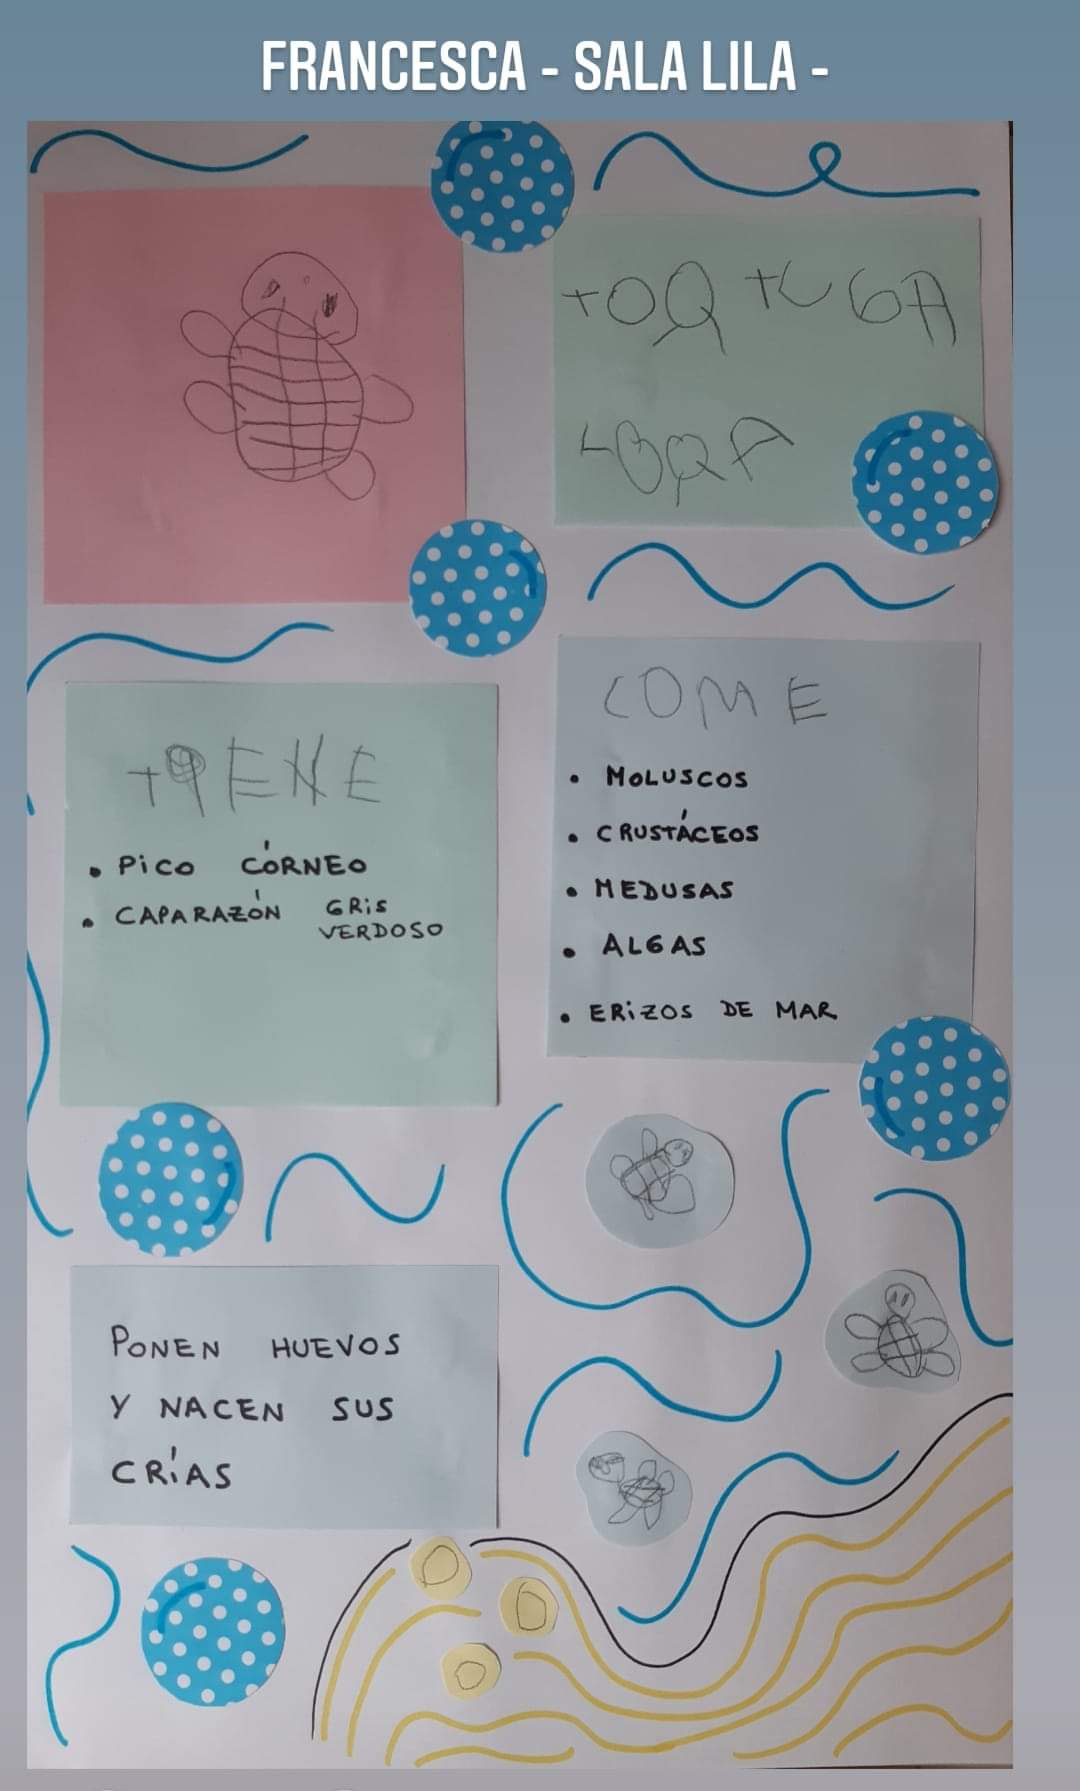 FRANCESCA - SALA LILA -
TOQTUGA
LOQA
TIENE
• PiCO CÓRNEO
• CAPARAZÓN GRiS
VERDOSO
COME
• MOLUSCOS
• CRUSTÁCEOS
• MEDUSAS
• ALGAS
• ERiZOS DE MAR
PONEN HUEVOS
Y NACEN SUS
CRÍAS